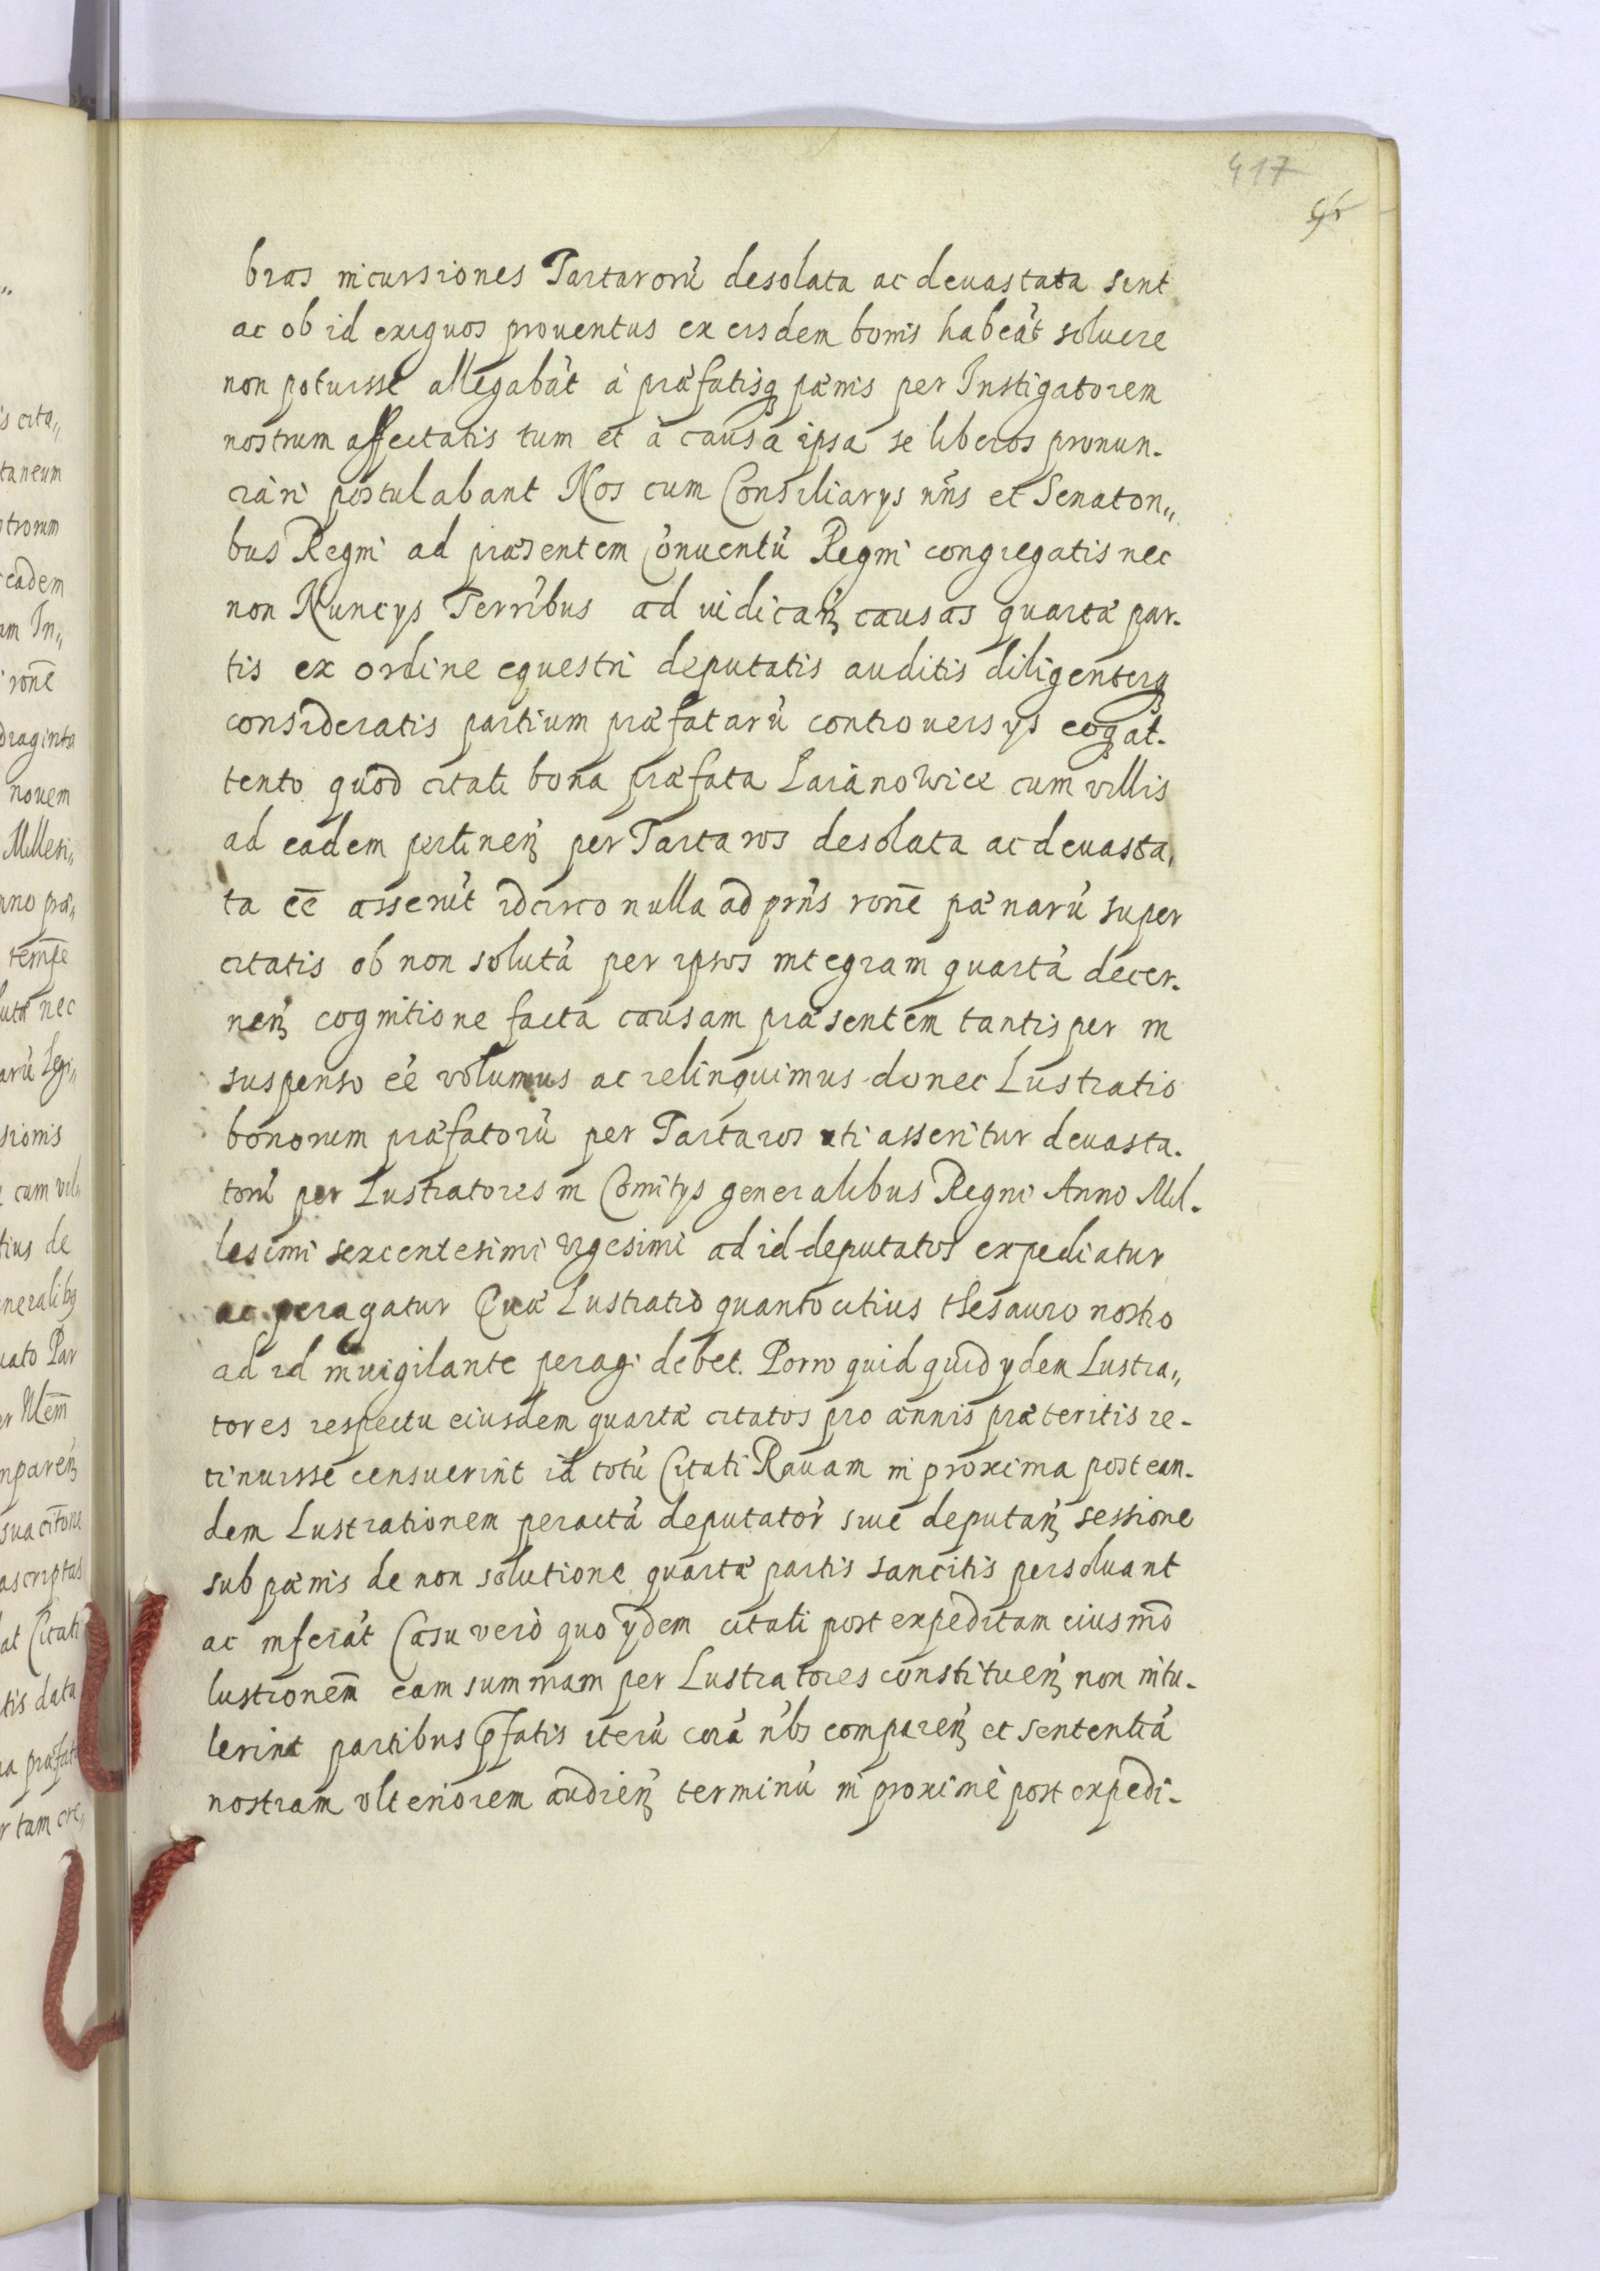 417
bras incursiones Tartarorũ desolata ac deuastata sint
ac ob id exiguos prouentus ex eisdem bonis habeãt soluere
non potuisse allegabãt à præfatisq pænis per Instigatorem
nostrum affectatis tum et à causa ipsa se liberos pronun-
ciari postulabant Nos cum Consiliarys nr̃is et Senatori„
bus Regni ad præsentem Conuentũ Regni congregatis nec
non Nuncys Terr̃ibus ad iudicañ causas quartæ par-
tis ex ordine equestri deputatis auditis diligenterq
consideratis partium præfatarũ controuersys eoq at-
tento quod citati bona præfata Laránowice cum villis
ad eadem pertineñ per Tartaros desolata ac deuasta,
ta eē asserũt idcirco nulla ad prñs ronē pænarũ super
citatis ob non solutã per ipsos integram quartã decer-
neñ cognitione facta causam præsentem tantisper in
suspenso eẽ volumus ac relinquimus donec Lustratio
bonorum præfatorũ per Tartaros uti asseritur deuasta-
torũ per Lustratores in Comitys generalibus Regni Anno Mil-
lesimi sexcentesimi vigesimi ad id deputatos expediatur
ac peragatur Quæ Lustratio quantocitius thesauro nostro
ad id inuigilante peragi debet. Porro quid quid ydem Lustra„
tores respectu eiusdem quartæ citatos pro annis præteritis re-
tinuisse censuerint id totũ Citati Rauam in proxima post ean-
dem Lustrationem peractã deputator̃ siue deputañ sessione
sub pænis de non solutione quartæ partis sancitis persoluant
ac inferãt Casu verò quo ydem citati post expeditam eiusmõ
lustrionem̃ eam summam per Lustratores constitueñ non intu-
lerint partibus p̃fatis iterũ corã nõbs compareñ et sententiã
nostram vlteriorem audieñ terminũ in proximè post expedi-